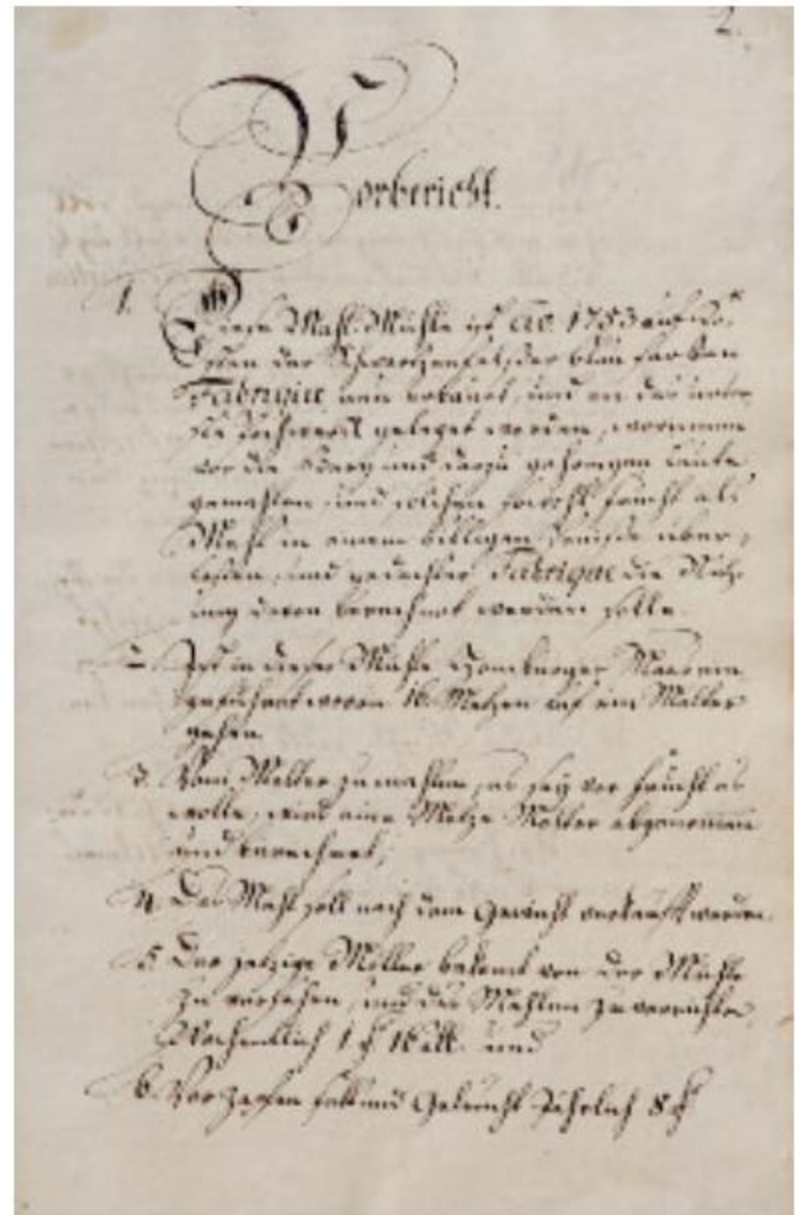 2.
Vorbericht.
1. Diese Mahl-Mühle ist ao. 1753 auf Ko-
sten der Schwartzenfelsser blau farben
Fabrique neu erbauet, und an das unter-
ste Pochwerck geleget worden, worinnen
vor die Berg und darzu gehörigen Leute
gemahlen und solchen sowohl frucht als
Mehl in einem billigen Preisse über-
lassen, und gedachter Fabrique die Nutz-
ung davon berechnet werden solle.
2. Ist in dieser Mühle Hamburger Maas ein-
geführet wovon 16. Metzen auf ein Malter
gehen.
3. Vom Malter zu mahlen, es sey vor frucht als
wolle, wird eine Metze Molter abgenommen
und berechnet,
4. Das Mehl soll nach dem Gewicht verkaufft werden.
5. Der jetzige Müller bekomt von der Mühle
zu versehen, und das Mahlen zu verrichten
Wochentlich 1 f 16 alb. und
6. Vor Jährlich 8 f